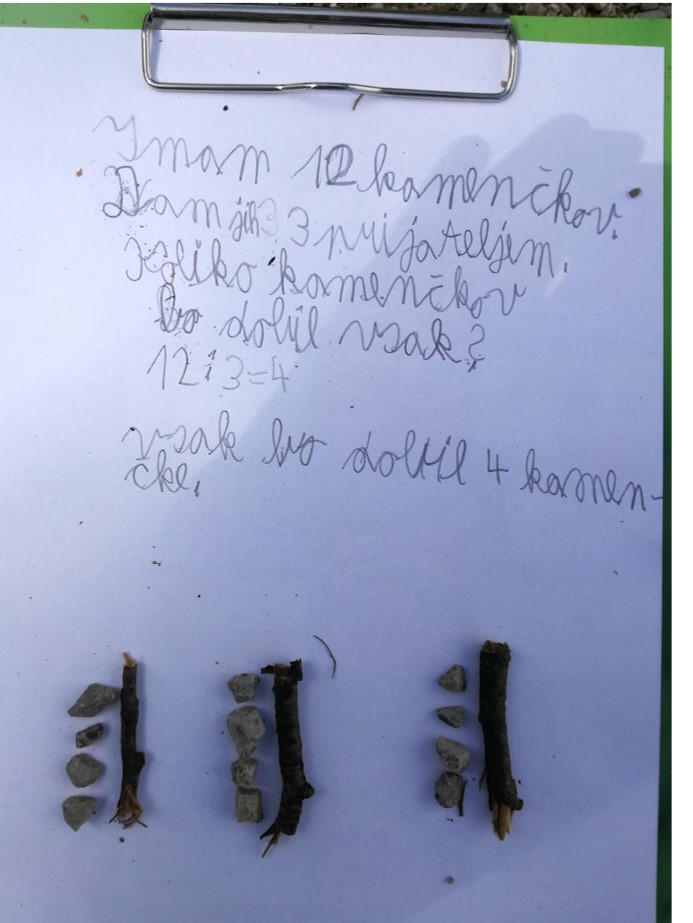 Imam 12 kamenčkov.
Dam jih 3 prijateljem.
Koliko kamenčkov
bo dobil vsak?
12:3=4
vsak bo dobil 4 kamen-
čke.